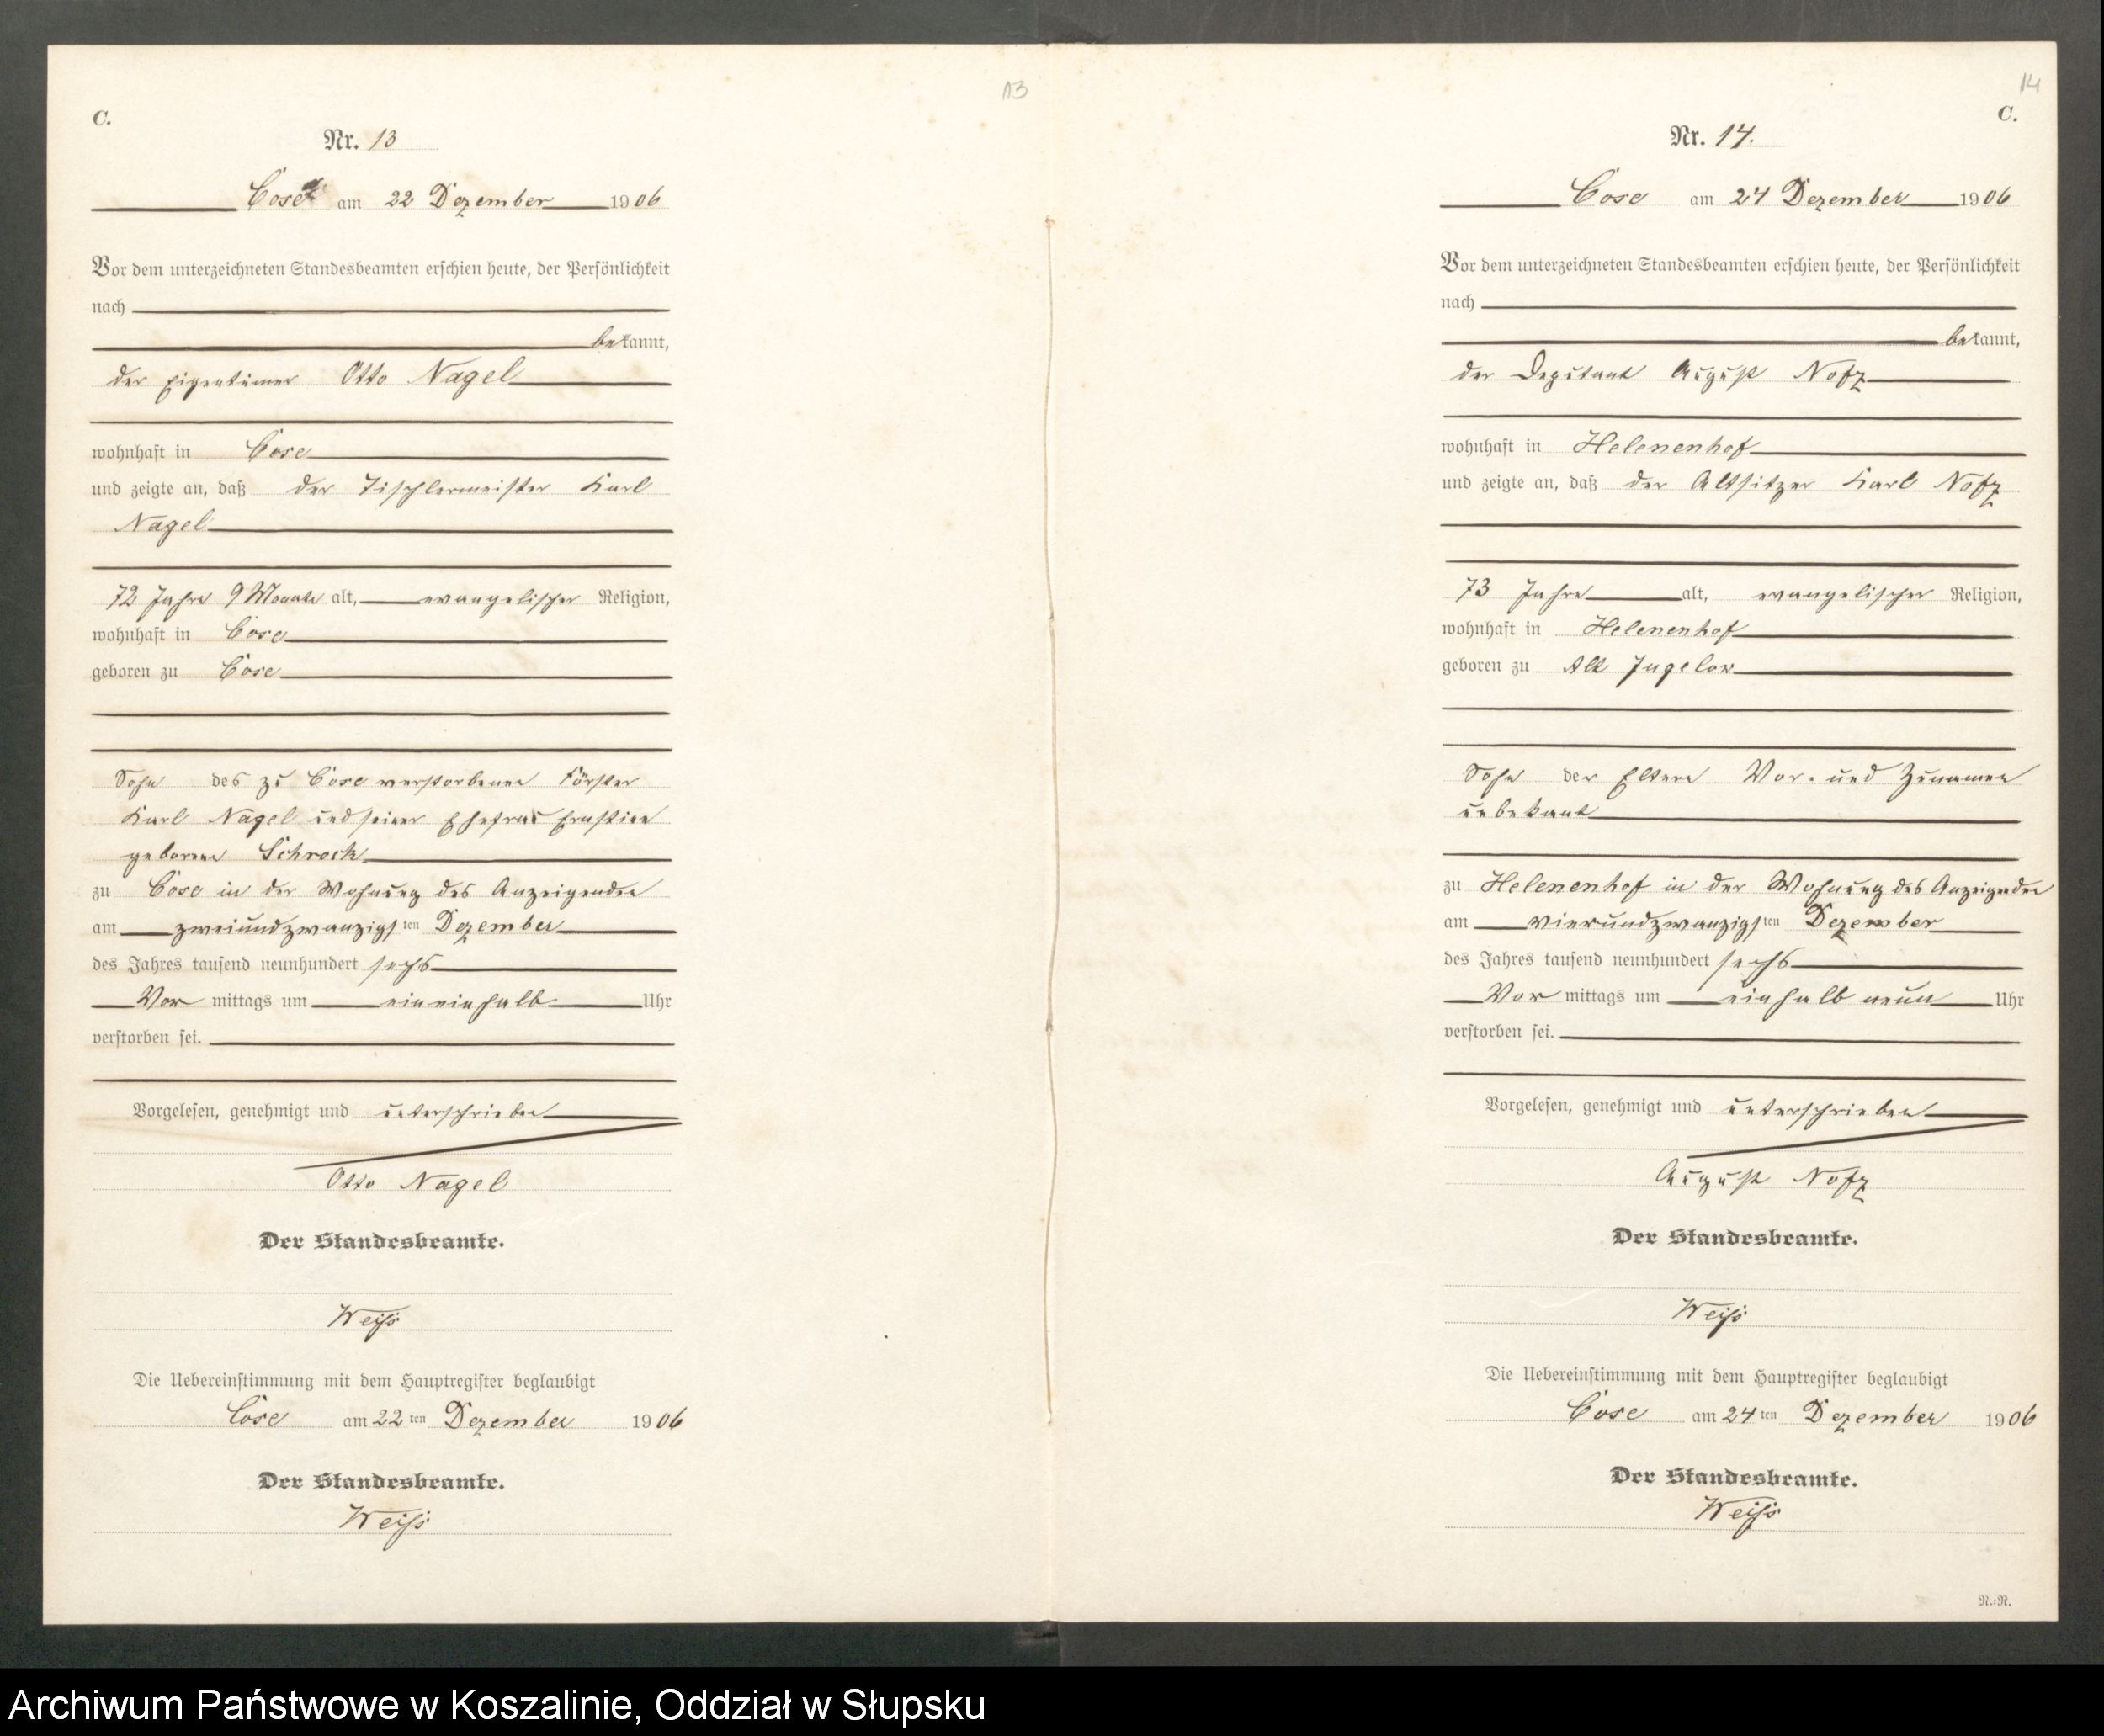 13
C.
Nr. 13
Cose am 22 Dezember 1906
Vor dem unterzeichneten Standesbeamten erschien heute, der Persönlichkeit
nach
bekannt,
der Eigentümer Otto Nagel
wohnhaft in Cose
und zeigte an, daß der Tischlermeister Karl
Nagel
72 Jahre 9 Monate alt, evangelischer Religion,
wohnhaft in Cose
geboren zu Cose
Sohn des zu Cose verstorbenen Förster
Karl Nagel und seiner Ehefrau Ernstine
geborene Schrock
zu Cose in der Wohnung des Anzeigenden
am zweiundzwanzigsten Dezember
des Jahres tausend neunhundert sechs
Vor mittags um eineinhalb Uhr
verstorben sei.
Vorgelesen, genehmigt und unterschrieben
Otto Nagel
Der Standesbeamte.
Weiß
Die Uebereinstimmung mit dem Hauptregister beglaubigt
Cose am 22ten Dezember 1906
Der Standesbeamte.
Weiß
14
C.
Nr. 14.
Cose am 24 Dezember 1906
Vor dem unterzeichneten Standesbeamten erschien heute, der Persönlichkeit
nach
bekannt,
der Deputant August Notz
wohnhaft in Helenenhof
und zeigte an, daß der Altsitzer Karl Notz
73 Jahre alt, evangelischer Religion,
wohnhaft in Helenenhof
geboren zu Alt Jugelow
Sohn der Eltern Vor- und Zunamen
unbekant
zu Helenenhof in der Wohnung des Anzeigenden
am vierundzwanzigsten Dezember
des Jahres tausend neunhundert sechs
Vor mittags um einhalb neun Uhr
verstorben sei.
Vorgelesen, genehmigt und unterschrieben
August Notz
Der Standesbeamte.
Weiß
Die Uebereinstimmung mit dem Hauptregister beglaubigt
Cose am 24ten Dezember 1906
Der Standesbeamte.
Weiß
N.-N.
Archiwum Państwowe w Koszalinie, Oddział w Słupsku